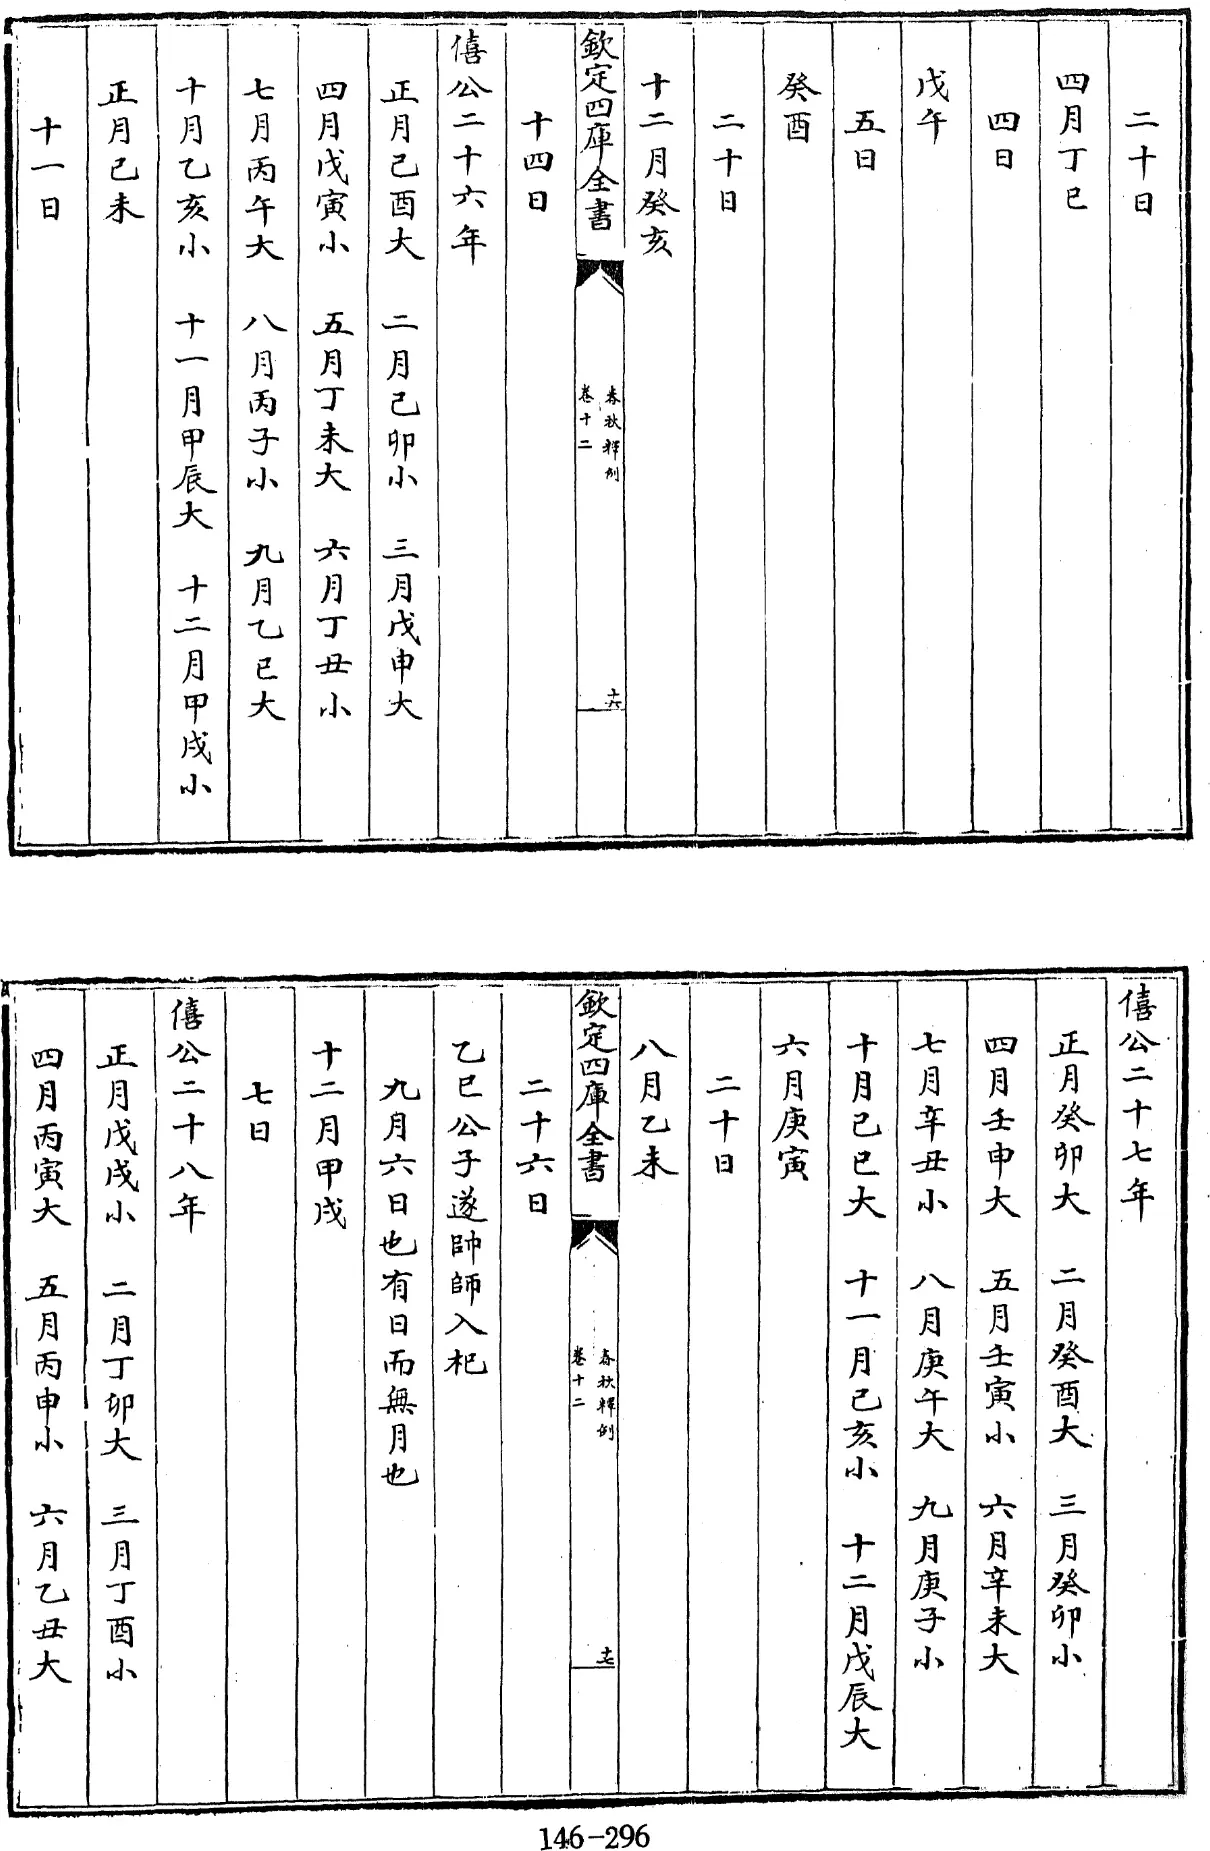 二十日
四月丁巳
四日
戊午
五日
癸酉
二十日
十二月癸亥
欽定四庫全書
春秋釋例
卷十二
十六
十四日
僖公二十六年
正月己酉大 二月己卯小 三月戊申大
四月戊寅小 五月丁未大 六月丁丑小
七月丙午大 八月丙子小 九月乙巳大
十月乙亥小 十一月甲辰大 十二月甲戌小
正月己未
十一日
僖公二十七年
正月癸卯大 二月癸酉大 三月癸卯小
四月壬申大 五月壬寅小 六月辛未大
七月辛丑小 八月庚午大 九月庚子小
十月己巳大 十一月己亥小 十二月戊辰大
六月庚寅
二十日
八月乙未
欽定四庫全書
春秋釋例
卷十二
十七
二十六日
乙巳公子遂帥師入杞
九月六日也有日而無月也
十二月甲戌
七日
僖公二十八年
正月戊戌小 二月丁卯大 三月丁酉小
四月丙寅大 五月丙申小 六月乙丑大
146-296